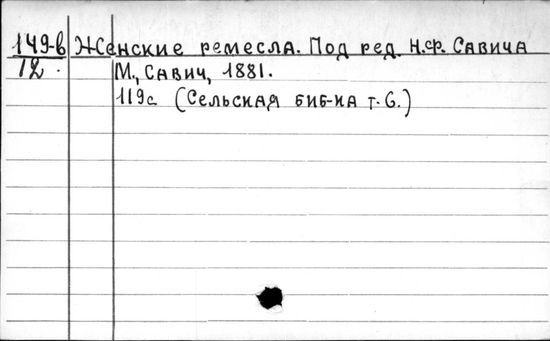 149-в Женские ремесла. Под ред. Н.Ф. Савича
12. М., Савич, 1881.
119с. (Сельская биб-ка т. 6.)